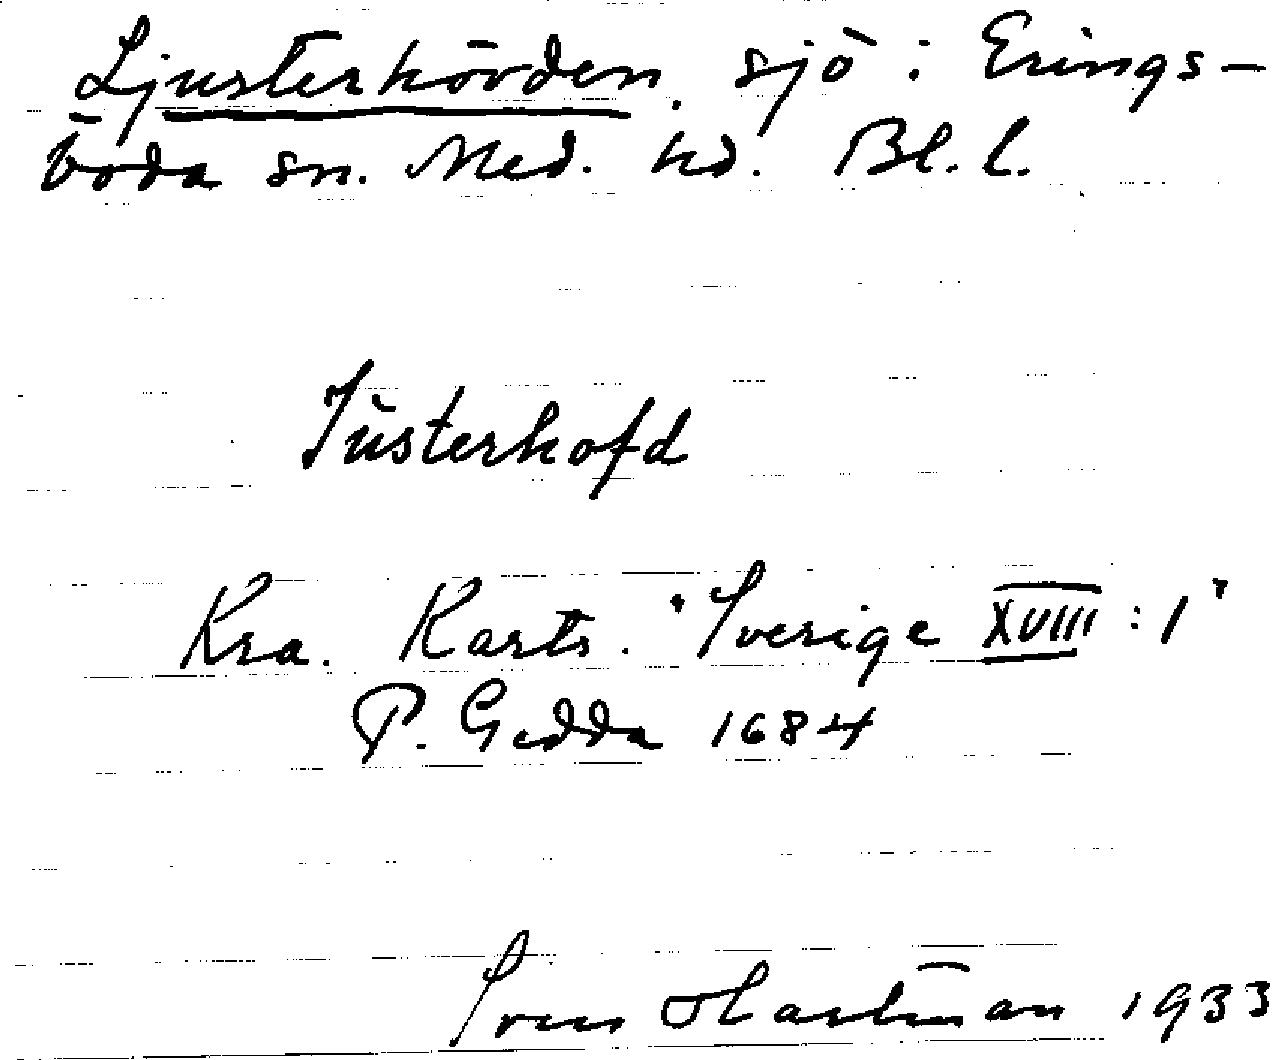 Ljusterhövden. sjö i Erings-
boda sn. Med. hd. Bl. l.
Jüsterhofd
Kra. Kartv. "Sverige XVIII : 1"
P. Gedda 1684
Sven Hartman 1933